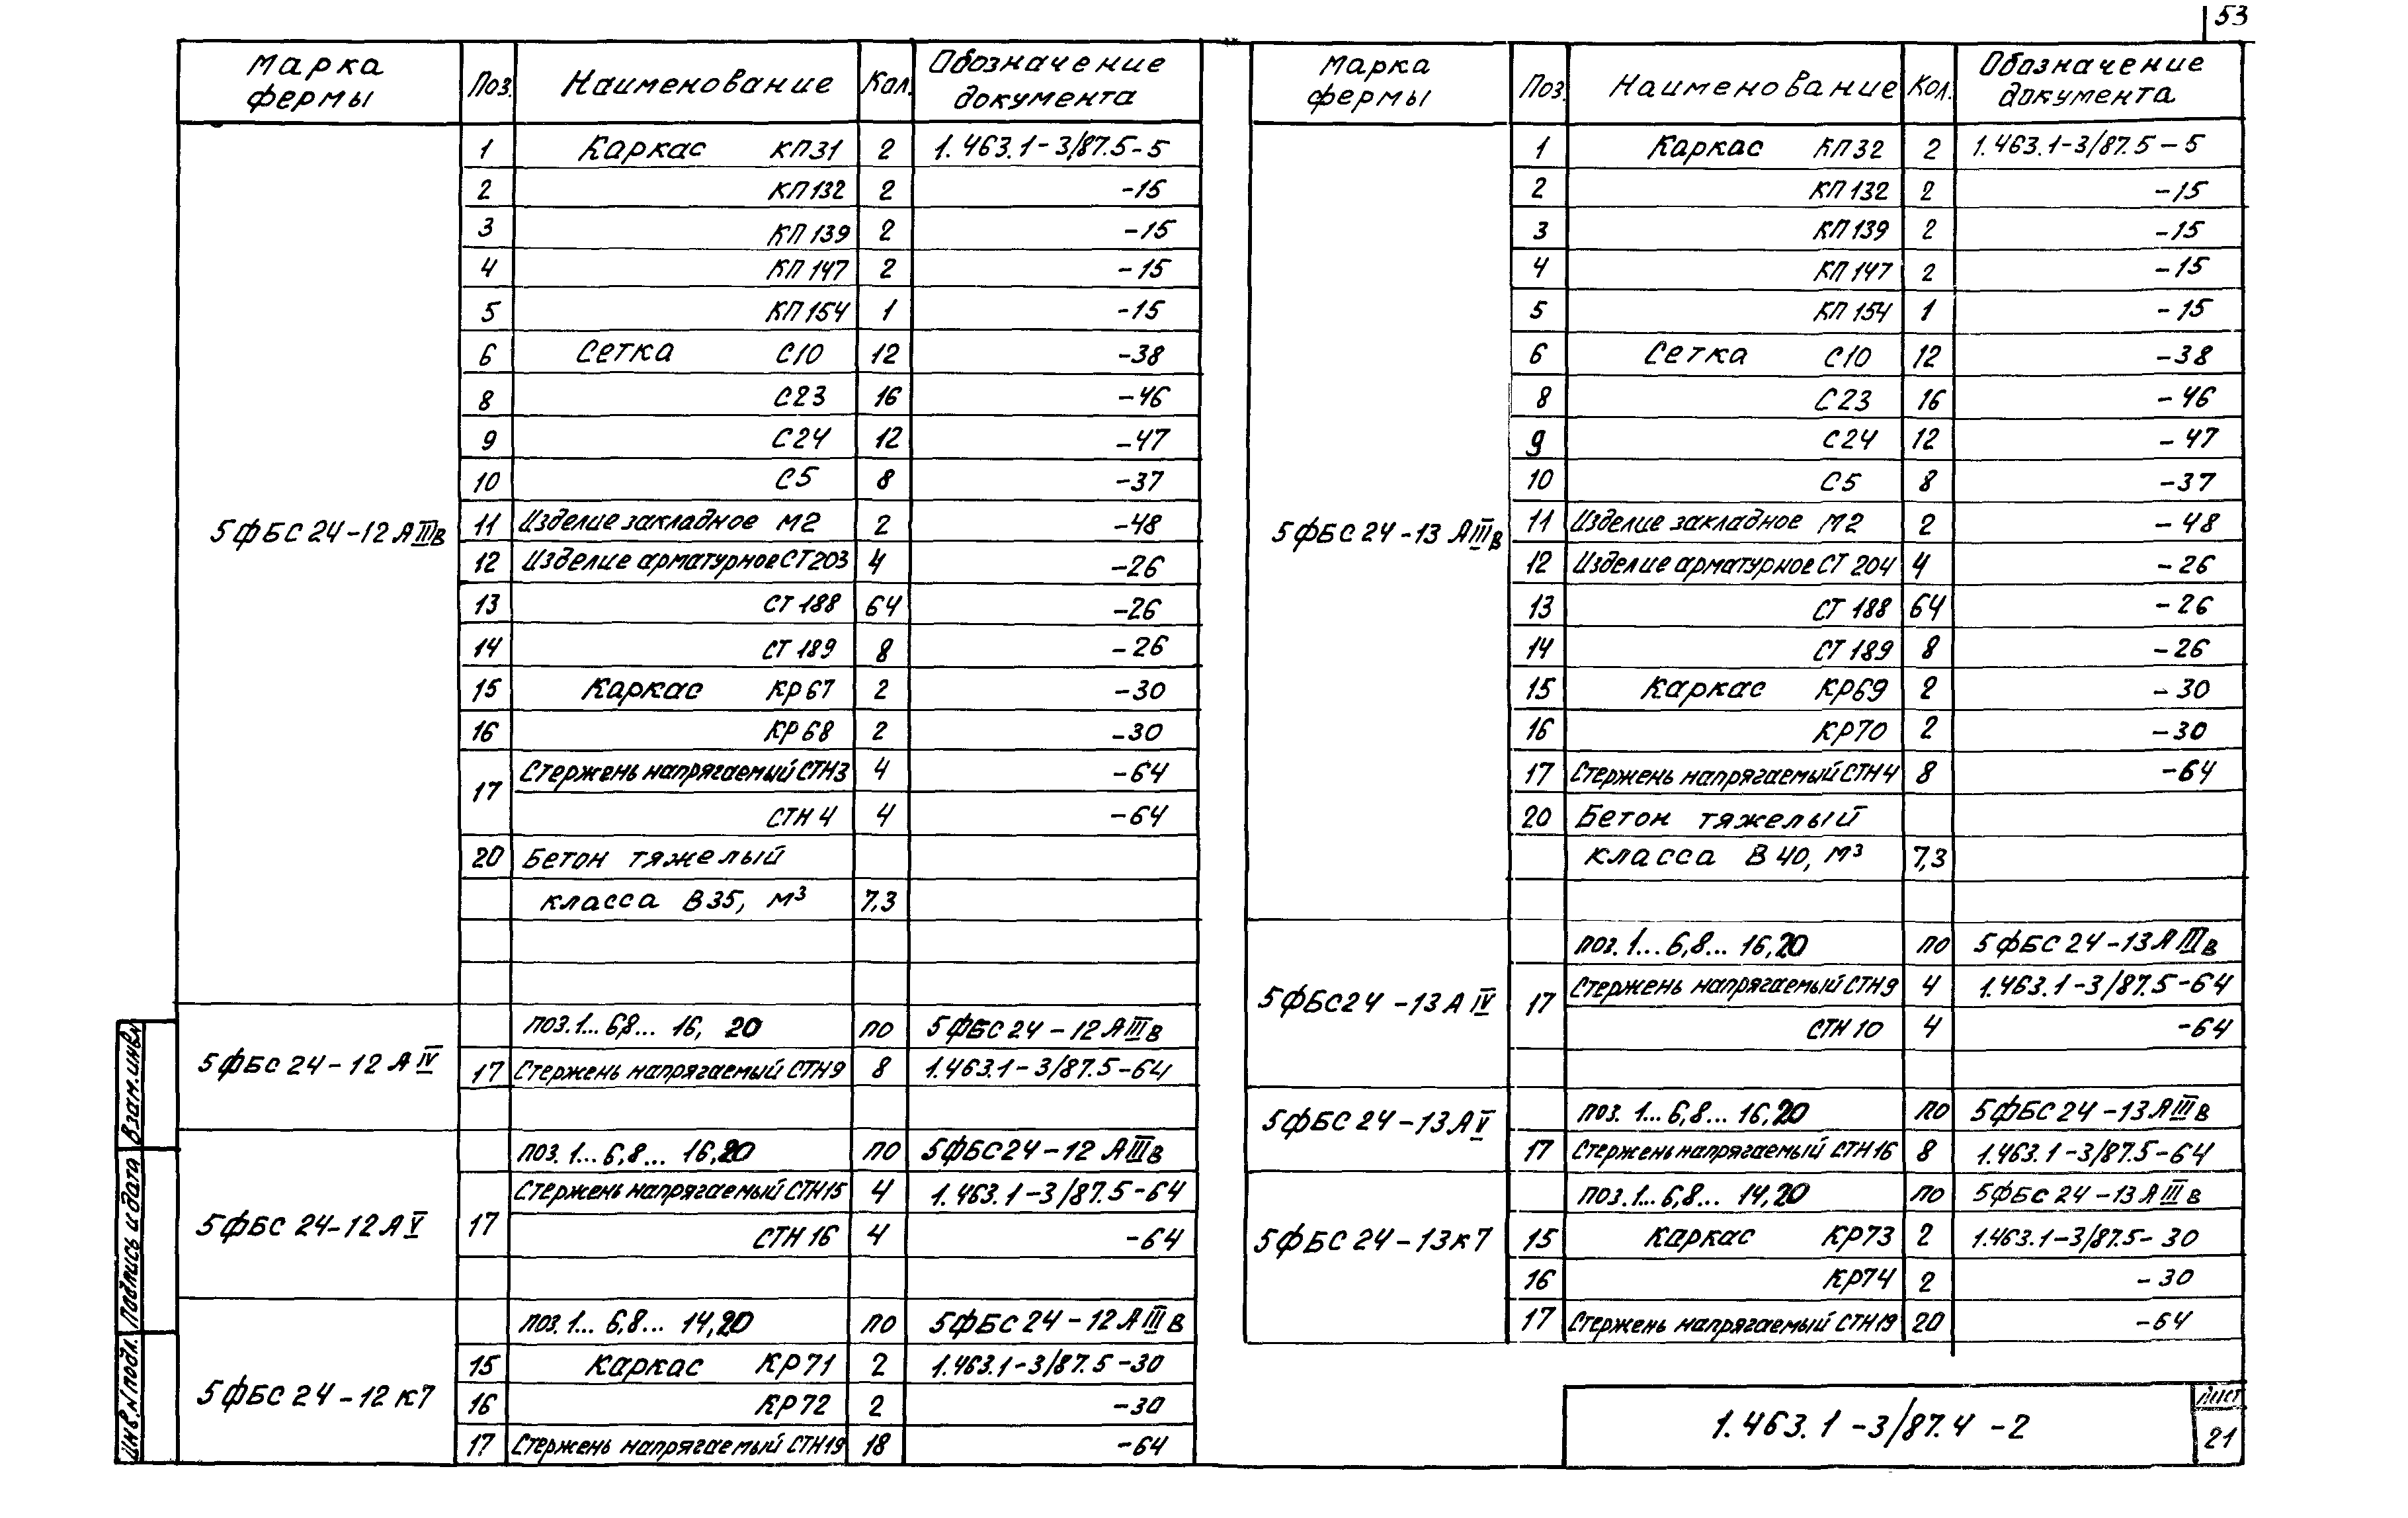 53
Марка фермы Поз. Наименование Кол. Обозначение документа
5ФБС24-12АIIIв
1 Каркас КП31 2 1.463.1-3/87.5-5
2 КП132 2 -15
3 КП139 2 -15
4 КП147 2 -15
5 КП154 1 -15
6 Сетка С10 12 -38
8 С23 16 -46
9 С24 12 -47
10 С5 8 -37
11 Изделие закладное М2 2 -48
12 Изделие арматурное СТ203 4 -26
13 СТ188 64 -26
14 СТ189 8 -26
15 Каркас КР67 2 -30
16 КР68 2 -30
17 Стержень напрягаемый СТН3 4 -64
СТН4 4 -64
20 Бетон тяжелый
класса В35, м³ 7,3
5ФБС24-12АIV
поз.1...6,8...16, 20 по 5ФБС24-12АIIIв
17 Стержень напрягаемый СТН9 8 1.463.1-3/87.5-64
5ФБС24-12АV
поз.1...6,8...16,20 по 5ФБС24-12АIIIв
17 Стержень напрягаемый СТН15 4 1.463.1-3/87.5-64
СТН16 4 -64
5ФБС24-12К7
поз.1...6,8...14,20 по 5ФБС24-12АIIIв
15 Каркас КР71 2 1.463.1-3/87.5-30
16 КР72 2 -30
17 Стержень напрягаемый СТН19 18 -64
Марка фермы Поз. Наименование Кол. Обозначение документа
5ФБС24-13АIIIв
1 Каркас КП32 2 1.463.1-3/87.5-5
2 КП132 2 -15
3 КП139 2 -15
4 КП147 2 -15
5 КП154 1 -15
6 Сетка С10 12 -38
8 С23 16 -46
9 С24 12 -47
10 С5 8 -37
11 Изделие закладное М2 2 -48
12 Изделие арматурное СТ204 4 -26
13 СТ188 64 -26
14 СТ189 8 -26
15 Каркас КР69 2 -30
16 КР70 2 -30
17 Стержень напрягаемый СТН4 8 -64
20 Бетон тяжелый
класса В40, м³ 7,3
5ФБС24-13АIV
поз.1...6,8...16,20 по 5ФБС24-13АIIIв
17 Стержень напрягаемый СТН9 4 1.463.1-3/87.5-64
СТН10 4 -64
5ФБС24-13АV
поз.1...6,8...16,20 по 5ФБС24-13АIIIв
17 Стержень напрягаемый СТН16 8 1.463.1-3/87.5-64
5ФБС24-13К7
поз.1...6,8...14,20 по 5ФБС24-13АIIIв
15 Каркас КР73 2 1.463.1-3/87.5-30
16 КР74 2 -30
17 Стержень напрягаемый СТН19 20 -64
Взам.инв.N
Подпись и дата
Инв.N подл.
1.463.1-3/87.4-2
Лист
21